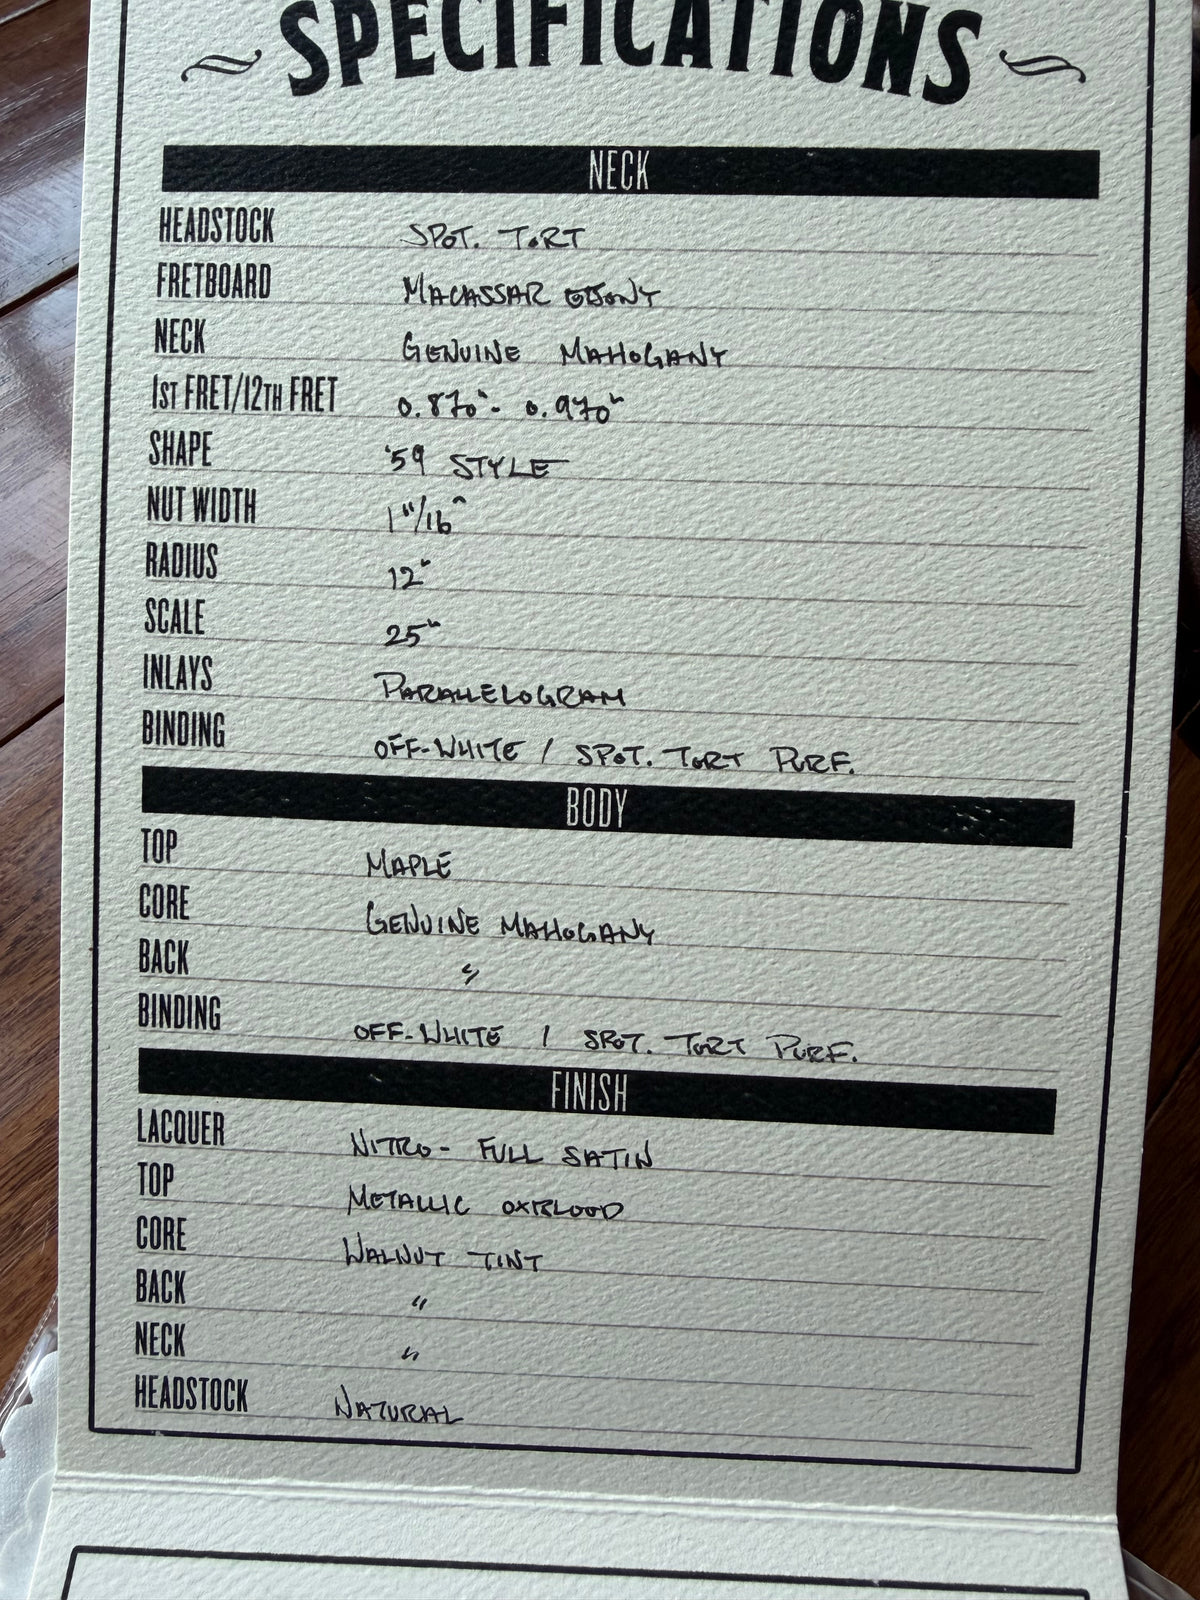 SPECIFICATIONS
NECK
HEADSTOCK SPOT. TORT
FRETBOARD MACASSAR EBONY
NECK GENUINE MAHOGANY
1ST FRET/12TH FRET 0.870"- 0.970"
SHAPE '59 STYLE
NUT WIDTH 1 11/16"
RADIUS 12"
SCALE 25"
INLAYS PARALLELOGRAM
BINDING OFF-WHITE / SPOT. TORT PURF.
BODY
TOP MAPLE
CORE GENUINE MAHOGANY
BACK "
BINDING OFF-WHITE / SPOT. TORT PURF.
FINISH
LACQUER NITRO- FULL SATIN
TOP METALLIC OXBLOOD
CORE WALNUT TINT
BACK "
NECK "
HEADSTOCK NATURAL